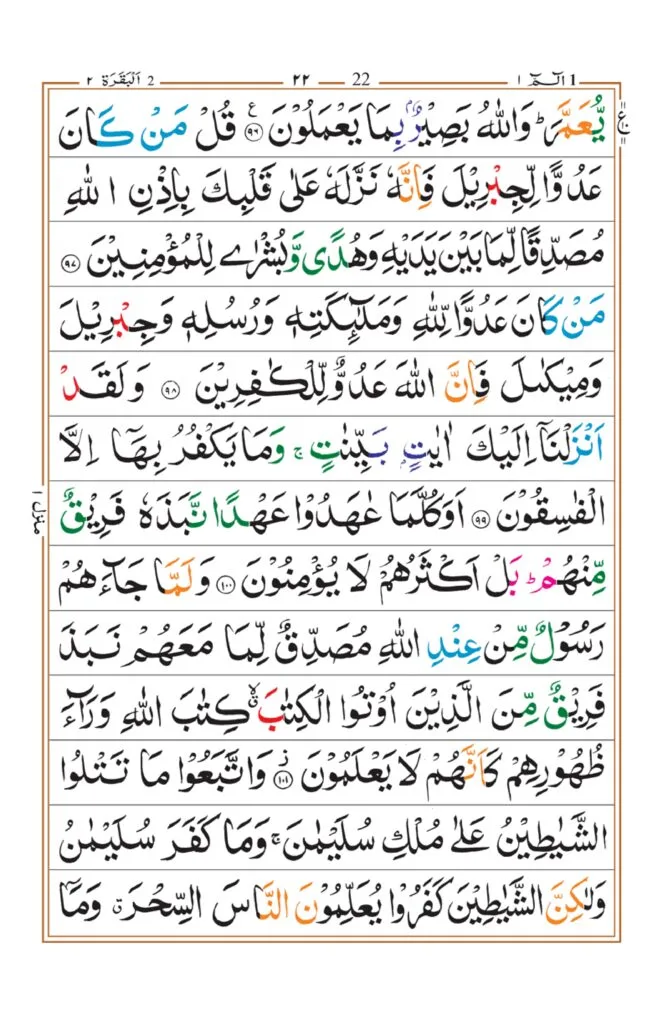 1 الٓمّٓ ١ 22 ٢٢ 2 اَلْبَقَرَة ٢
يُّعَمَّرَ ؕ وَاللّٰهُ بَصِيْرٌۢ بِمَا يَعْمَلُوْنَ ﴿۹۶﴾ ع قُلْ مَنْ كَانَ
ع
عَدُوًّا لِّجِبْرِيْلَ فَاِنَّهٗ نَزَّلَهٗ عَلٰى قَلْبِكَ بِاِذْنِ اللّٰهِ
مُصَدِّقًا لِّمَا بَيْنَ يَدَيْهِ وَهُدًى وَّبُشْرٰى لِلْمُؤْمِنِيْنَ ﴿۹۷﴾
مَنْ كَانَ عَدُوًّا لِّلّٰهِ وَمَلٰٓئِكَتِهٖ وَرُسُلِهٖ وَجِبْرِيْلَ
وَمِيْكٰىلَ فَاِنَّ اللّٰهَ عَدُوٌّ لِّلْكٰفِرِيْنَ ﴿۹۸﴾ وَلَقَدْ
اَنْزَلْنَاۤ اِلَيْكَ اٰيٰتٍۭ بَيِّنٰتٍ ۚ وَمَا يَكْفُرُ بِهَاۤ اِلَّا
الْفٰسِقُوْنَ ﴿۹۹﴾ اَوَكُلَّمَا عٰهَدُوْا عَهْدًا نَّبَذَهٗ فَرِيْقٌ
منزل ١
مِّنْهُمْ ؕ بَلْ اَكْثَرُهُمْ لَا يُؤْمِنُوْنَ ﴿۱۰۰﴾ وَلَمَّا جَآءَهُمْ
رَسُوْلٌ مِّنْ عِنْدِ اللّٰهِ مُصَدِّقٌ لِّمَا مَعَهُمْ نَبَذَ
فَرِيْقٌ مِّنَ الَّذِيْنَ اُوْتُوا الْكِتٰبَ ۙ كِتٰبَ اللّٰهِ وَرَآءَ
ظُهُوْرِهِمْ كَاَنَّهُمْ لَا يَعْلَمُوْنَ ﴿۱۰۱﴾ ز وَاتَّبَعُوْا مَا تَتْلُوا
الشَّيٰطِيْنُ عَلٰى مُلْكِ سُلَيْمٰنَ ۚ وَمَا كَفَرَ سُلَيْمٰنُ
وَلٰكِنَّ الشَّيٰطِيْنَ كَفَرُوْا يُعَلِّمُوْنَ النَّاسَ السِّحْرَ ۗ وَمَاۤ